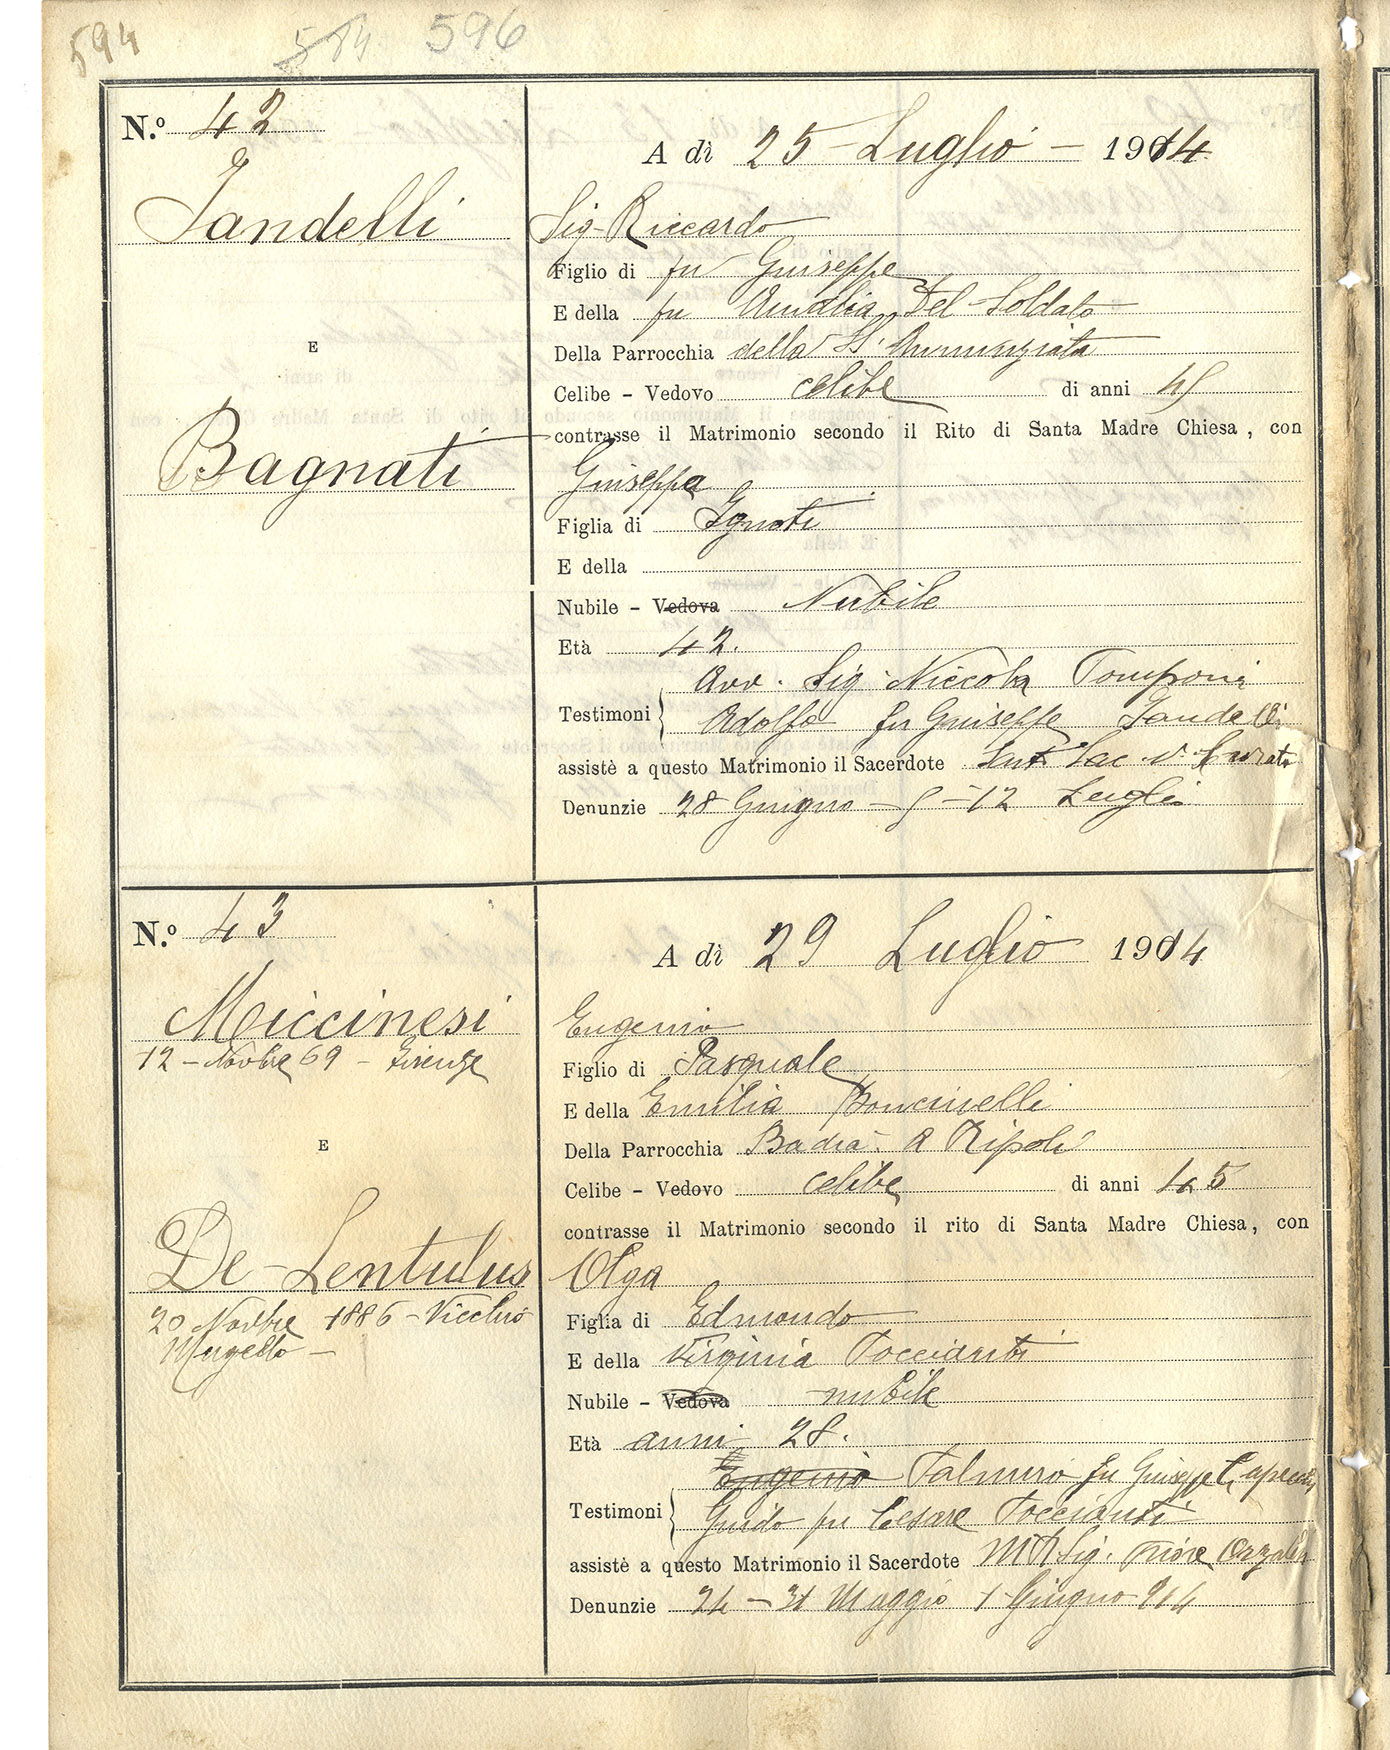 594 584 596
N.º 42
A dì 25 - Luglio - 1914
Jandelli
Sig. Riccardo
Figlio di fu Giuseppe
E della fu Amalia Del Soldato
E
Della Parrocchia della SS. Annunziata
Celibe - Vedovo celibe di anni 45
contrasse il Matrimonio secondo il Rito di Santa Madre Chiesa, con
Bagnati
Giuseppa
Figlia di Ignoti
E della
Nubile - Vedova Nubile
Età 42.
Avv. Sig. Niccola Pomponi
Testimoni Adolfo fu Giuseppe Jandelli
assistè a questo Matrimonio il Sacerdote Inf. Sac. Curato
Denunzie 28 Giugno - 5 - 12 Luglio
N.º 43
A dì 29 Luglio 1914
Miccinesi
12 - Novbre 69 - Firenze
Eugenio
Figlio di Pasquale
E della Emilia Boncinelli
E
Della Parrocchia Badia a Ripoli
Celibe - Vedovo celibe di anni 45
contrasse il Matrimonio secondo il rito di Santa Madre Chiesa, con
De-Lentulus
20 Novbre 1886 - Vicchio
Mugello -
Olga
Figlia di Edmondo
E della Virginia Toccianti
Nubile - Vedova nubile
Età anni 28.
Eugenio Palmiro fu Giuseppe Capecchi
Testimoni Guido fu Cesare Toccianti
assistè a questo Matrimonio il Sacerdote M R Sig. Priore
Denunzie 24 - 31 Maggio 1 Giugno 914